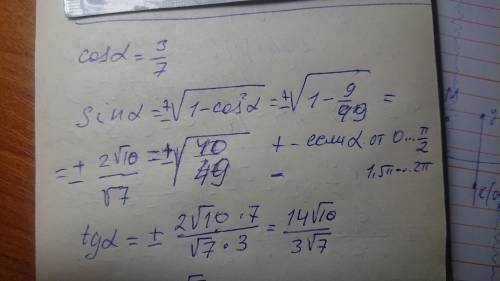 cosα = 3/7
sinα = ±√(1-cos²α) = ±√(1 - 9/49) =
= ± 2√10/√7 = ±√(40/49) + - если α от 0...π/2
- 1,5π...2π
tgα = ± (2√10 · 7)/(√7 · 3) = 14√10/(3√7)